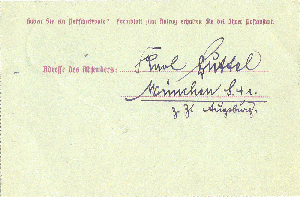 Haben Sie ein Postscheckkonto? Formblatt zum Antrag erhalten Sie bei Ihrem Postamt.
Adresse des Absenders: Karl Huttel
München
z. Zt. Augsburg.